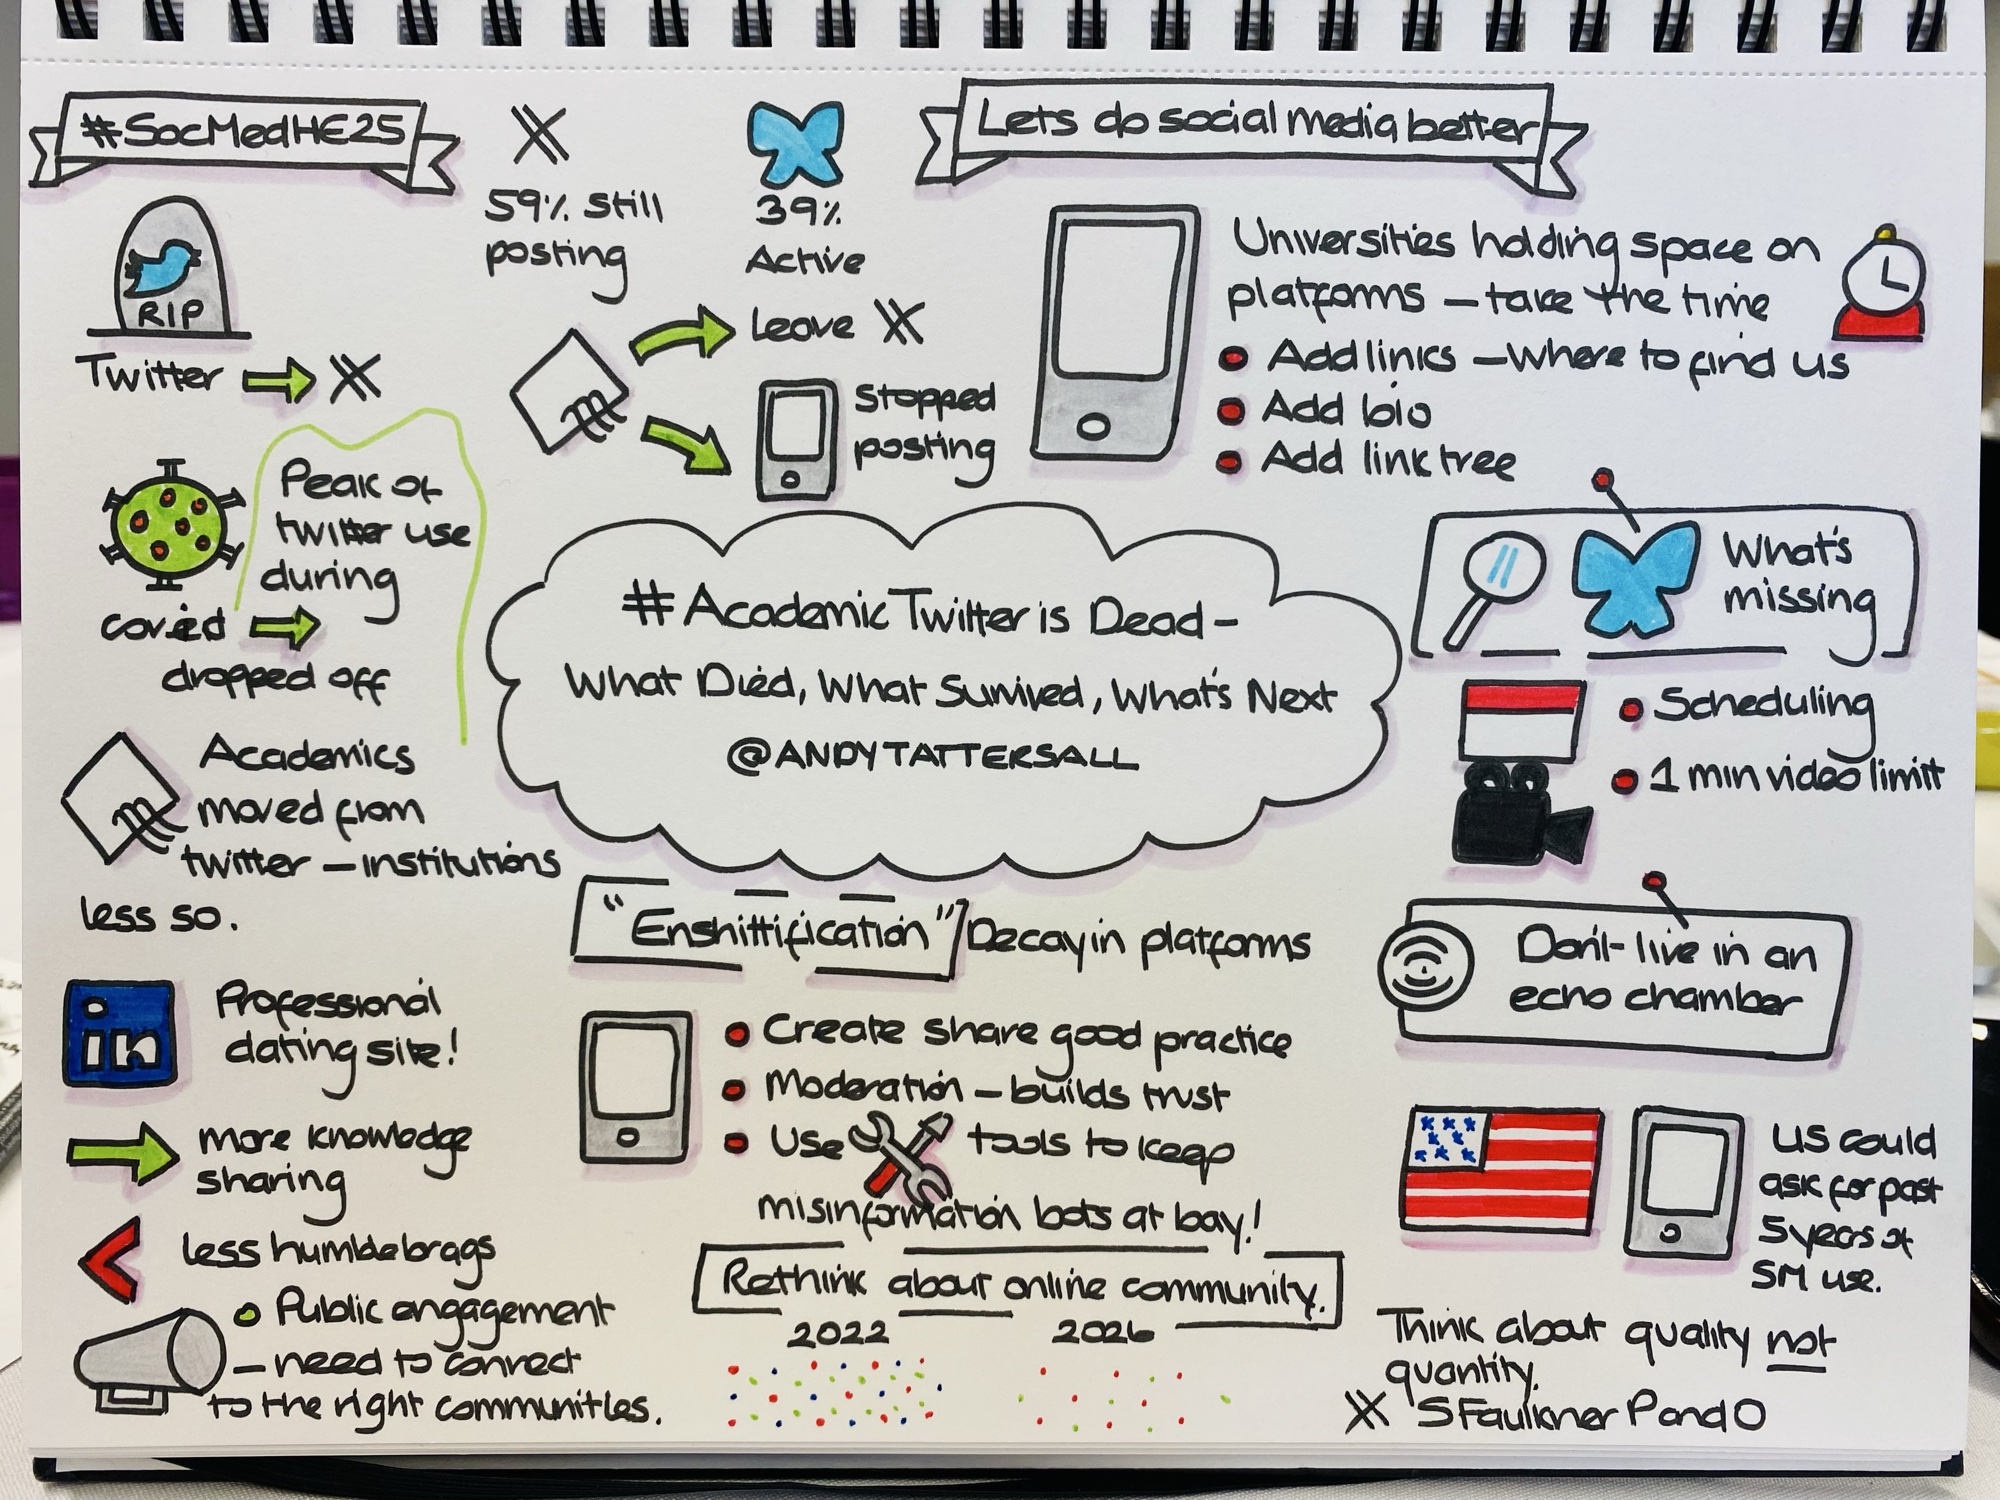 #SocMedHE25
RIP
Twitter → X
X
59% Still
posting
39%
Active
Leave X
Stopped
posting
Lets do social media better
Universities holding space on
platforms – take the time
Add links – where to find us
Add bio
Add link tree
Peak of
twitter use
during
covid →
dropped off
Academics
moved from
twitter – institutions
less so.
in
Professional
dating site!
more knowledge
sharing
< less humblebrags
Public engagement
– need to connect
to the right communities.
#Academic Twitter is Dead –
What Died, What Survived, What's Next
@ANDYTATTERSALL
"Enshittification" Decay in platforms
Create share good practice
Moderation – builds trust
Use tools to keep
misinformation bots at bay!
Rethink about online community.
2022
2026
What's
missing
Scheduling
1 min video limit
Don't live in an
echo chamber
US could
ask for past
5 years of
SM use.
Think about quality not
quantity.
X SFaulknerPandO